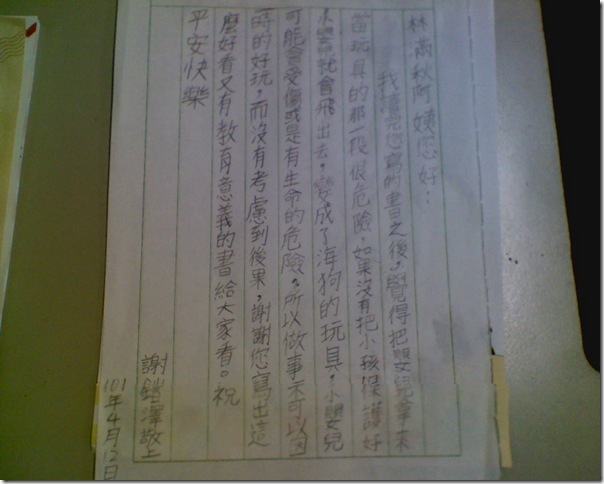 林滿秋阿姨您好：
我讀完您寫的書之後，覺得把嬰兒拿來
當玩具的那一段很危險，如果沒有把小孩保護好
小嬰兒就會飛出去，變成了海狗的玩具，小嬰兒
可能會受傷或是有生命的危險，所以做事不可以因
一時的好玩，而沒有考慮到後果，謝謝您寫出這
麼好看又有教育意義的書給大家看。祝
平安快樂
謝鎧澤敬上
101年4月12日